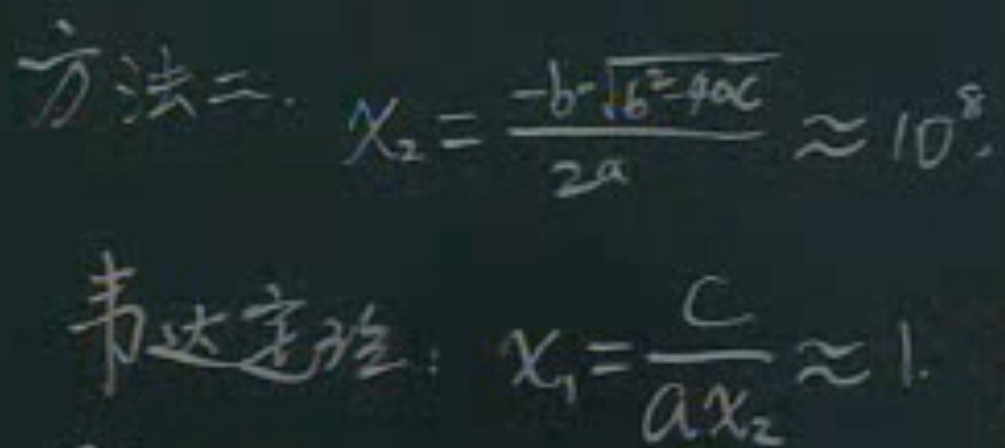 方法二. x₂ = (-b-√(b²-4ac))/(2a) ≈ 10⁸.
韦达定理: x₁ = c/(ax₂) ≈ 1.